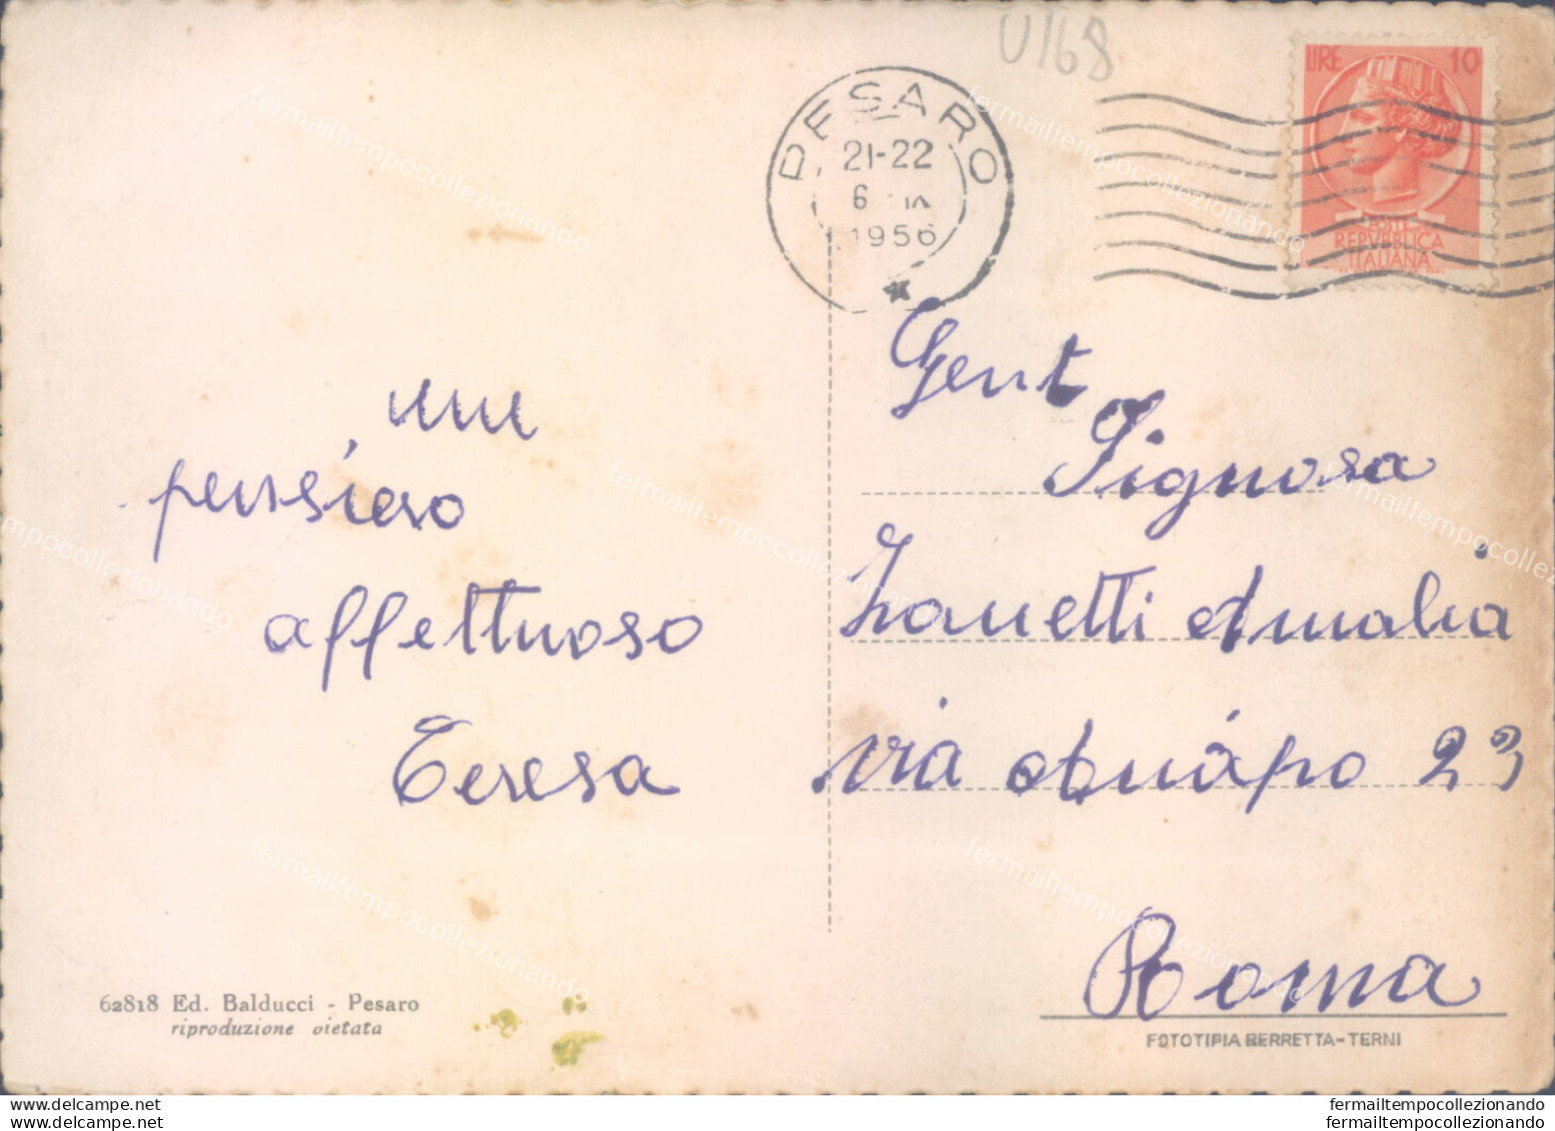 U168
PESARO
21-22
6 IX
1956
LIRE 10
POSTE
REPVBBLICA
ITALIANA
un
pensiero
affettuoso
Teresa
Gent
Signora
Zanetti Amalia
via Anápo 23
Roma
62818 Ed. Balducci - Pesaro
riproduzione vietata
FOTOTIPIA BERRETTA-TERNI
www.delcampe.net
fermailtempocollezionando
www.delcampe.net
fermailtempocollezionando